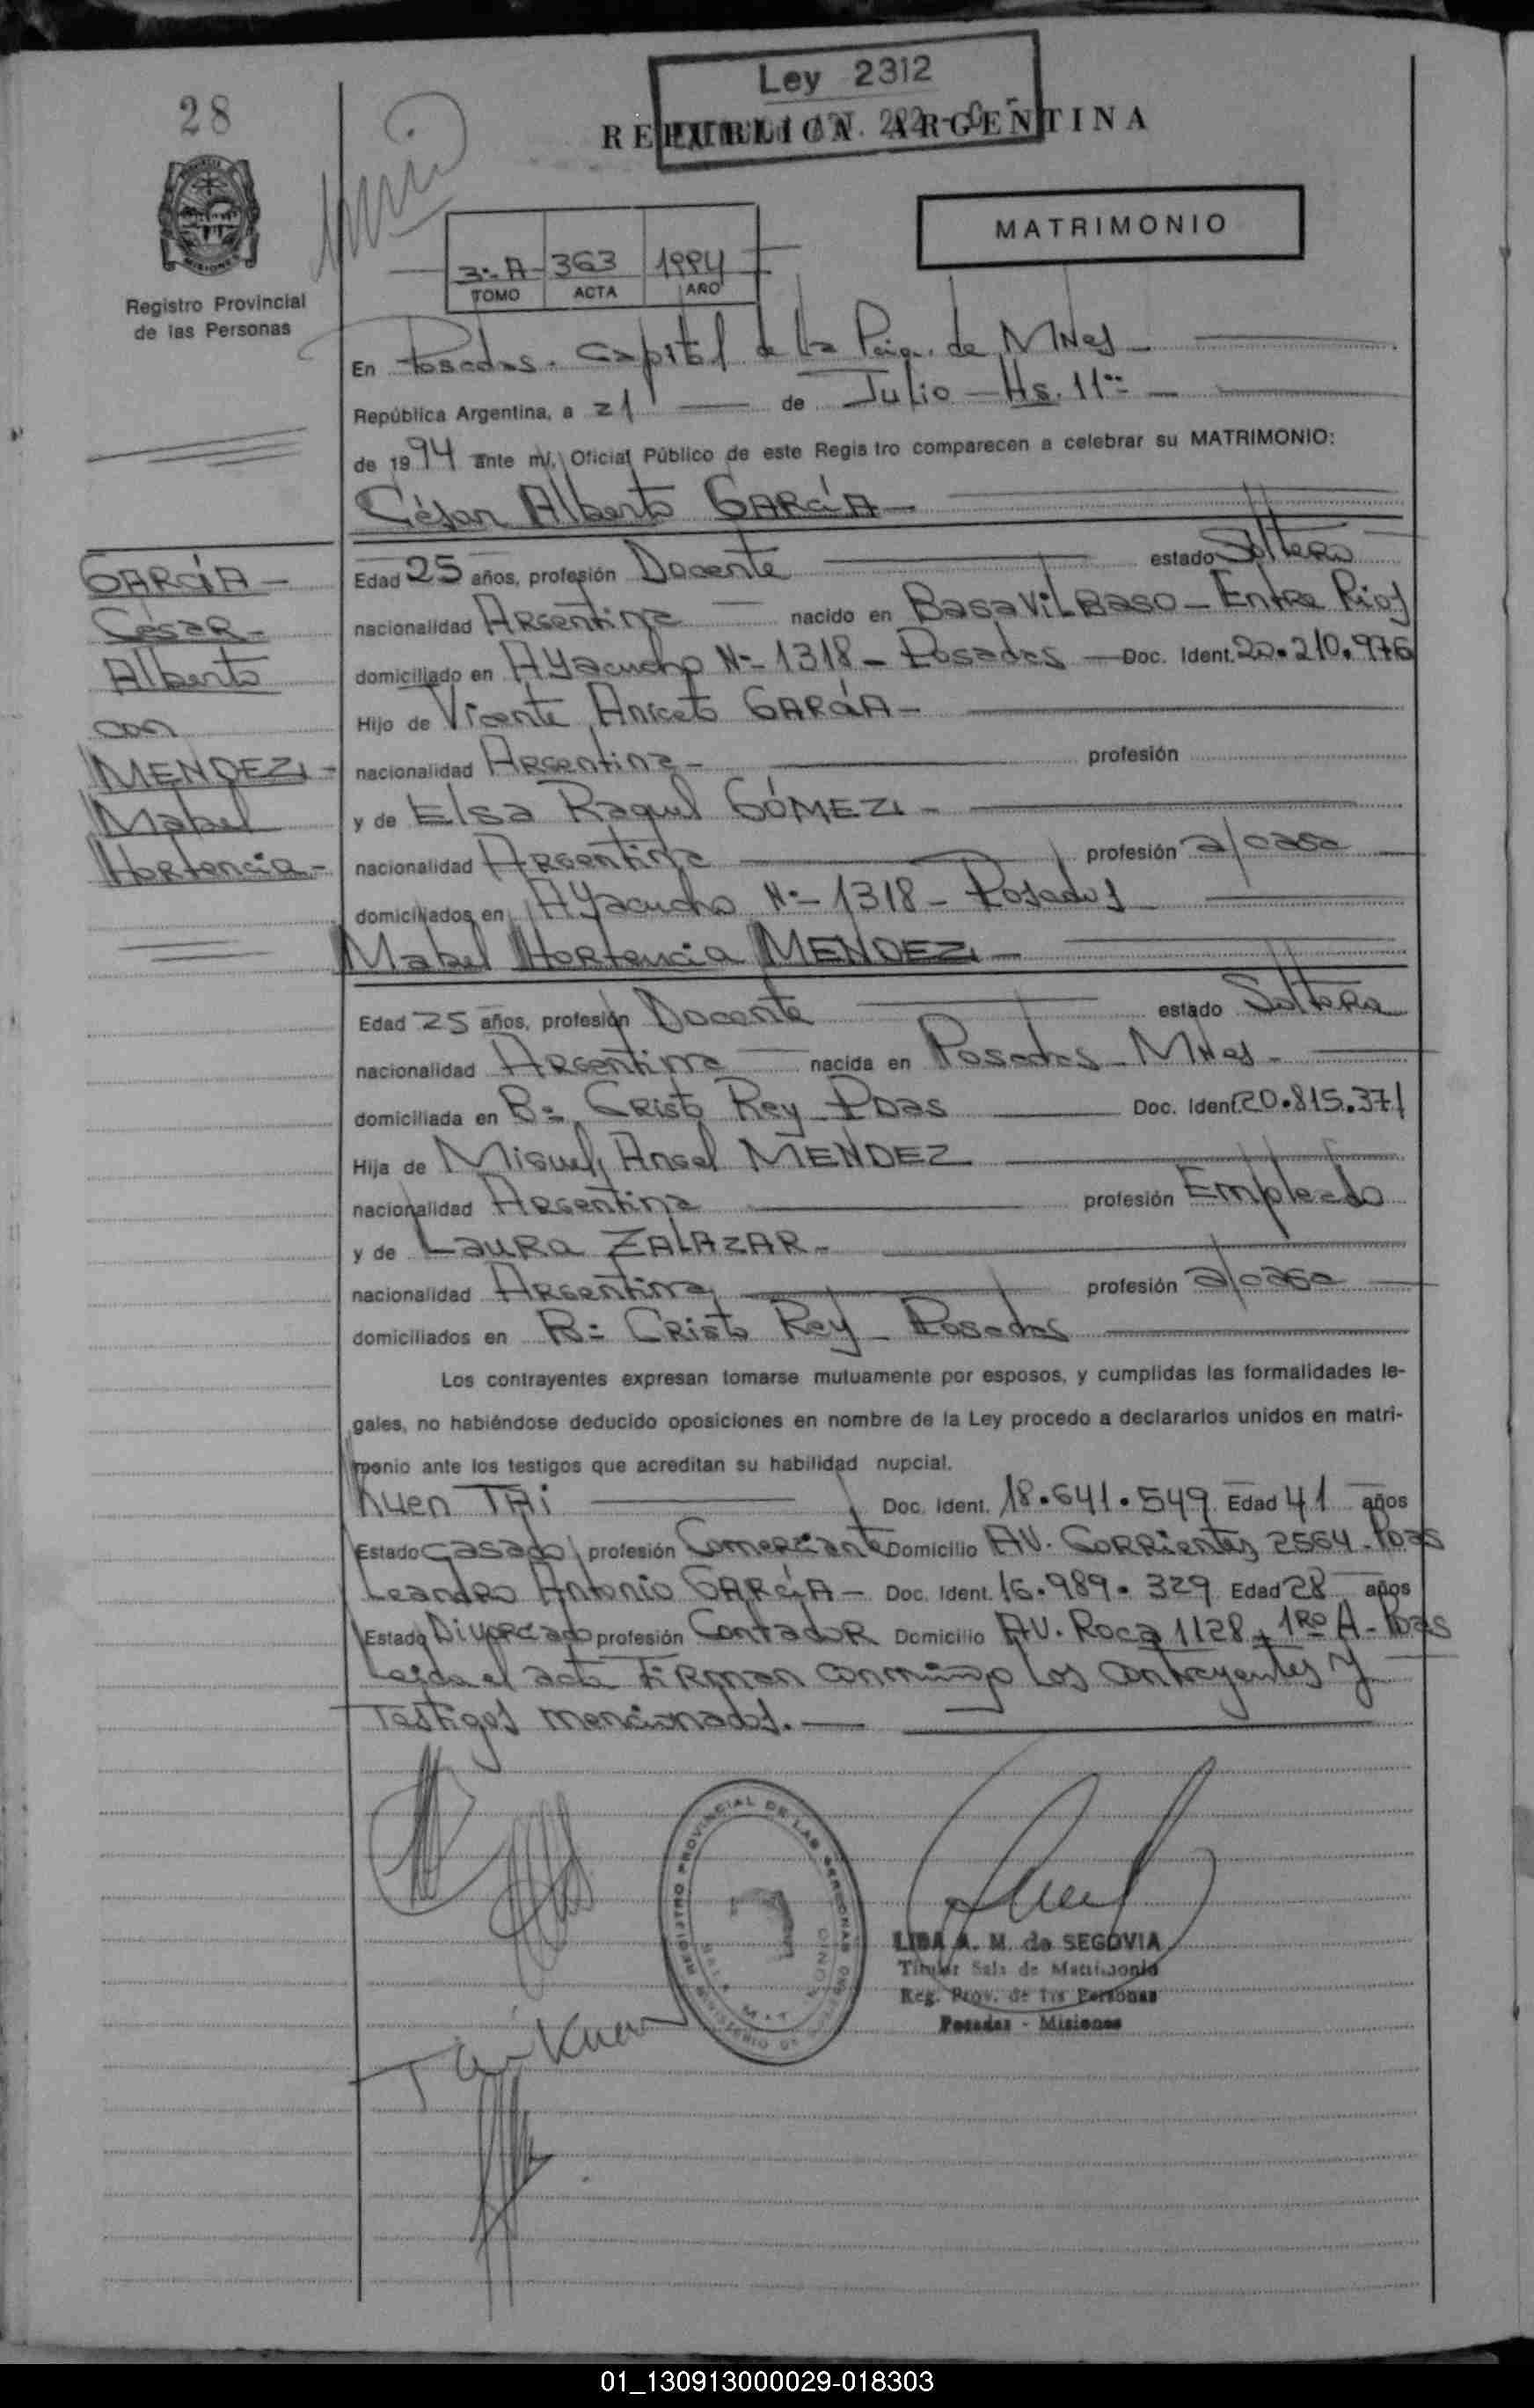 28
Ley 2312
REPUBLICA ARGENTINA
MATRIMONIO
3º A 363 1994
TOMO ACTA AÑO
Registro Provincial
de las Personas
En Posadas. Capital de la Pcia. de Mnes
República Argentina, a 21 de Julio - Hs. 11
de 1994 ante mí, Oficial Público de este Registro comparecen a celebrar su MATRIMONIO:
César Alberto GARCÍA
GARCÍA
César
Alberto
con
MENDEZ
Mabel
Hortencia
Edad 25 años, profesión Docente estado Soltero
nacionalidad Argentina nacido en Basavilbaso - Entre Rios
domiciliado en Ayacucho Nº 1318 - Posadas Doc. Ident. 20.210.976
Hijo de Vicente Aniceto GARCÍA
nacionalidad Argentina profesión
y de Elsa Raquel GÓMEZ
nacionalidad Argentina profesión a/casa
domiciliados en Ayacucho Nº 1318 - Posadas
Mabel Hortencia MENDEZ
Edad 25 años, profesión Docente estado Soltera
nacionalidad Argentina nacida en Posadas - Mnes
domiciliada en Bº Cristo Rey Pdas Doc. Ident. 20.815.371
Hija de Miguel Angel MENDEZ
nacionalidad Argentina profesión Empleado
y de Laura ZALAZAR
nacionalidad Argentina profesión a/casa
domiciliados en Bº Cristo Rey - Posadas
Los contrayentes expresan tomarse mutuamente por esposos, y cumplidas las formalidades le-
gales, no habiéndose deducido oposiciones en nombre de la Ley procedo a declararlos unidos en matri-
monio ante los testigos que acreditan su habilidad nupcial.
Kuen TAi Doc. Ident. 18.641.549 Edad 41 años
Estado casado profesión Comerciante Domicilio AV. Corrientes 2564 - Pdas
Leandro Antonio GARCÍA - Doc. Ident. 16.989.329 Edad 28 años
Estado Divorciado profesión Contador Domicilio AV. Roca 1128 - 1RO A - Pdas
Leida el acta firman conmigo los contrayentes y
Testigos mencionados.
REGISTRO PROVINCIAL DE LAS PERSONAS
LIBA A. M. de SEGOVIA
Titular Sala de Matrimonio
Reg. Prov. de las Personas
Posadas - Misiones
Tai Kuen
01_130913000029-018303